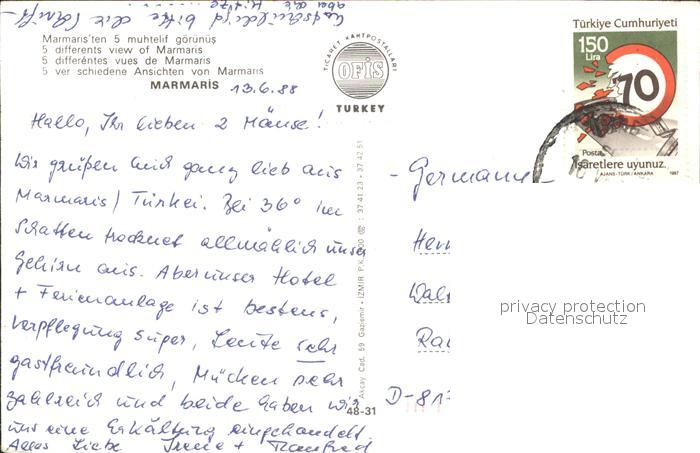 Entschuldigt bitte die Schrift -
aber die Hitze
Marmaris'ten 5 muhtelif görünüş
5 differents view of Marmaris
5 différentes vues de Marmaris
5 ver schiedene Ansichten von Marmaris
MARMARİS
13.6.88
TİCARET KARTPOSTALLARI
OFİS
TURKEY
Türkiye Cumhuriyeti
150
Lira
70
Posta
İşaretlere uyunuz.
AJANS-TÜRK/ANKARA 1987
Hallo, Ihr lieben 2 Mäuse!
Wir grüßen Euch ganz lieb aus
Marmaris/Türkei. Bei 36° im
Schatten trocknet allmählich unser
Gehirn aus. Aber unser Hotel
+ Ferienanlage ist bestens,
Verpflegung super, Leute sehr
gastfreundlich, Mücken sehr
zahlreich und beide haben wir
uns eine Erkältung eingehandelt
Alles Liebe Irene + Manfred
Akçay Cad. 59 Gaziemir - İZMİR P.K. : 37 41 23 - 37 42 51
48-31
- Germany -
D-81
privacy protection
Datenschutz